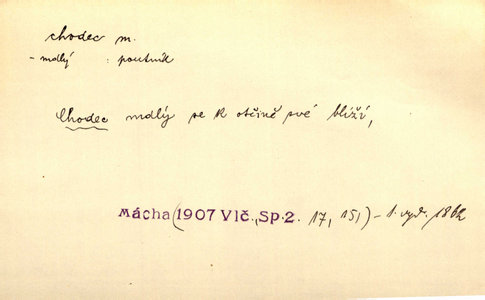 chodec m.
- mdlý : poutník
Chodec mdlý se k otčině své blíží,
Mácha (1907 Vlč., Sp. 2. 17, 151) - 1. vyd. 1862